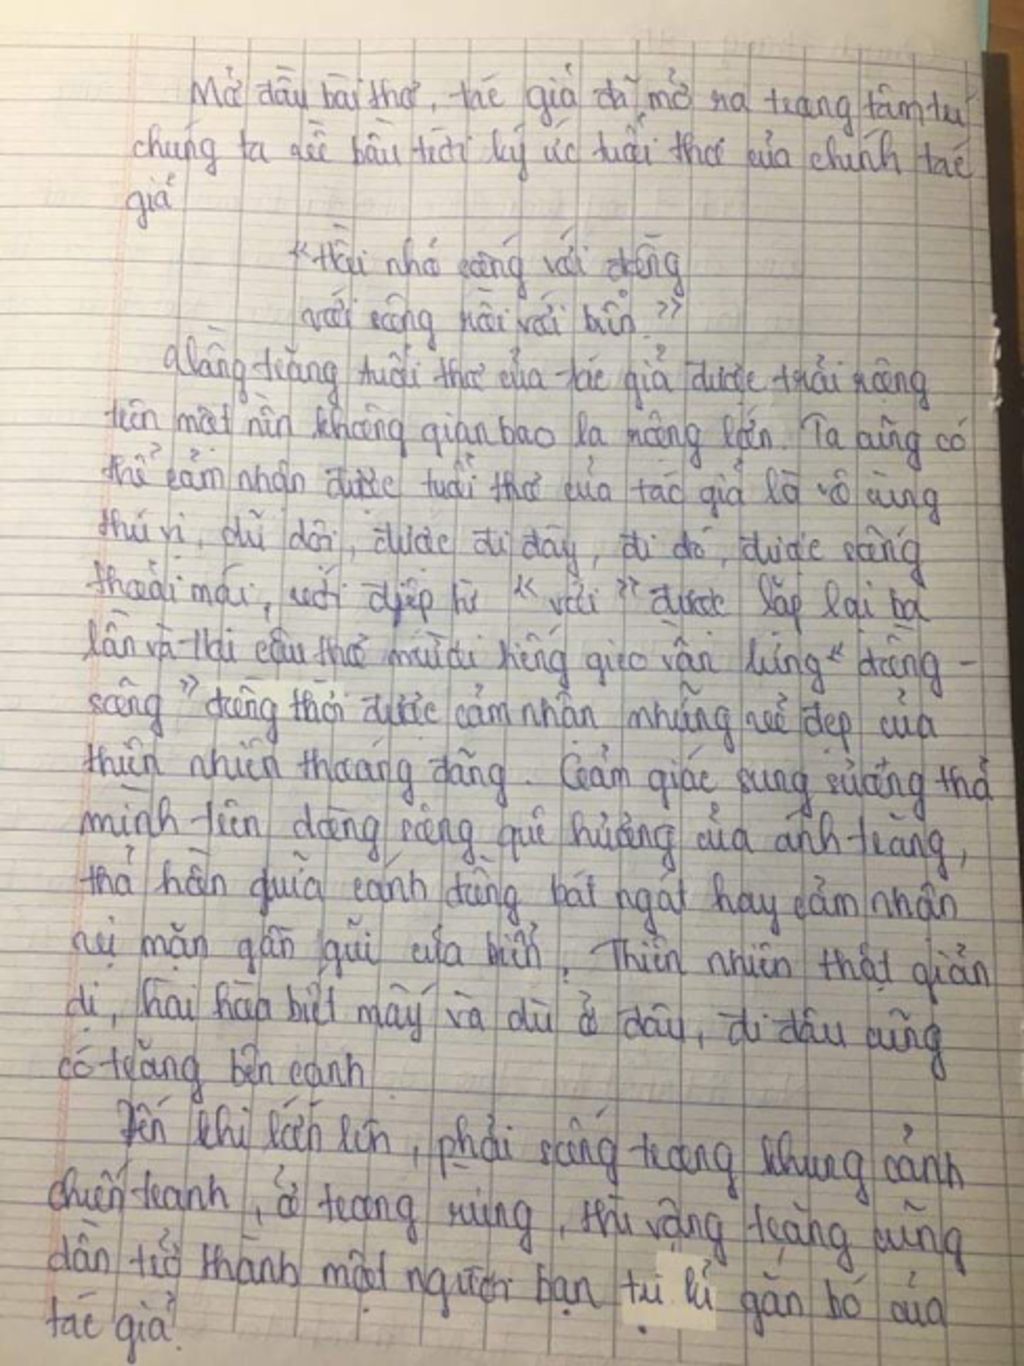 Mở đầu bài thơ, tác giả đã mở ra trong tâm tư
chúng ta về bầu trời ký ức tuổi thơ của chính tác
giả
"Hồi nhỏ sống với đồng
với sông rồi với biển"
Vầng trăng tuổi thơ của tác giả được trải rộng
trên một nền không gian bao la rộng lớn. Ta cũng có
thể cảm nhận được tuổi thơ của tác giả là vô cùng
thú vị, dữ dội, được đi đây, đi đó, được sống
thoải mái, với điệp từ "với" được lặp lại ba
lần và hai câu thơ mười tiếng gieo vần lưng "đồng -
sông" đồng thời được cảm nhận những vẻ đẹp của
thiên nhiên thoáng đãng. Cảm giác sung sướng thả
mình trên dòng sông quê hương của ánh trăng,
thả hồn giữa cánh đồng bát ngát hay cảm nhận
vị mặn gần gũi của biển. Thiên nhiên thật giản
dị, hài hòa biết mấy và dù ở đâu, đi đâu cũng
có trăng bên cạnh
Đến khi lớn lên, phải sống trong khung cảnh
chiến tranh, ở trong rừng, thì vầng trăng cũng
dần trở thành một người bạn tri kỉ gắn bó của
tác giả.